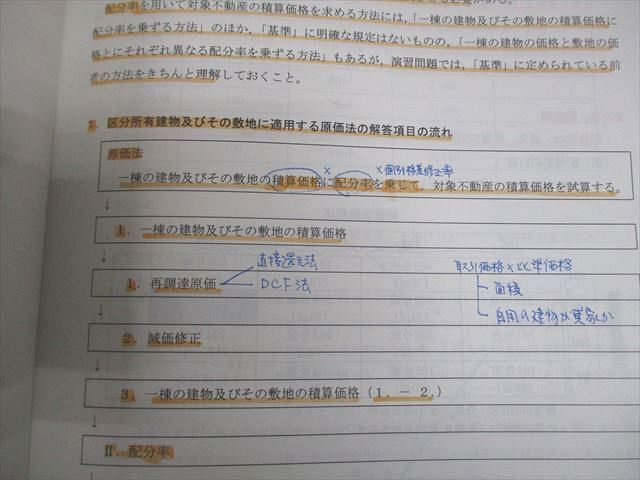 配分率を用いて対象不動産の積算価格を求める方法には、「一棟の建物及びその敷地の積算価格に
配分率を乗ずる方法」のほか、「基準」に明確な規定はないものの、「一棟の建物の価格と敷地の価
格とにそれぞれ異なる配分率を乗ずる方法」もあるが、演習問題では、「基準」に定められている前
者の方法をきちんと理解しておくこと。
区分所有建物及びその敷地に適用する原価法の解答項目の流れ
原価法
× ×個別格差修正率
一棟の建物及びその敷地の積算価格に配分率を乗じて、対象不動産の積算価格を試算する。
↓
Ⅰ.一棟の建物及びその敷地の積算価格
↓
直接還元法
取引価格×比準価格
1.再調達原価
DCF法
面積
↓
自用の建物か貸家か
2.減価修正
↓
3.一棟の建物及びその敷地の積算価格(1.-2.)
↓
Ⅱ.配分率
↓